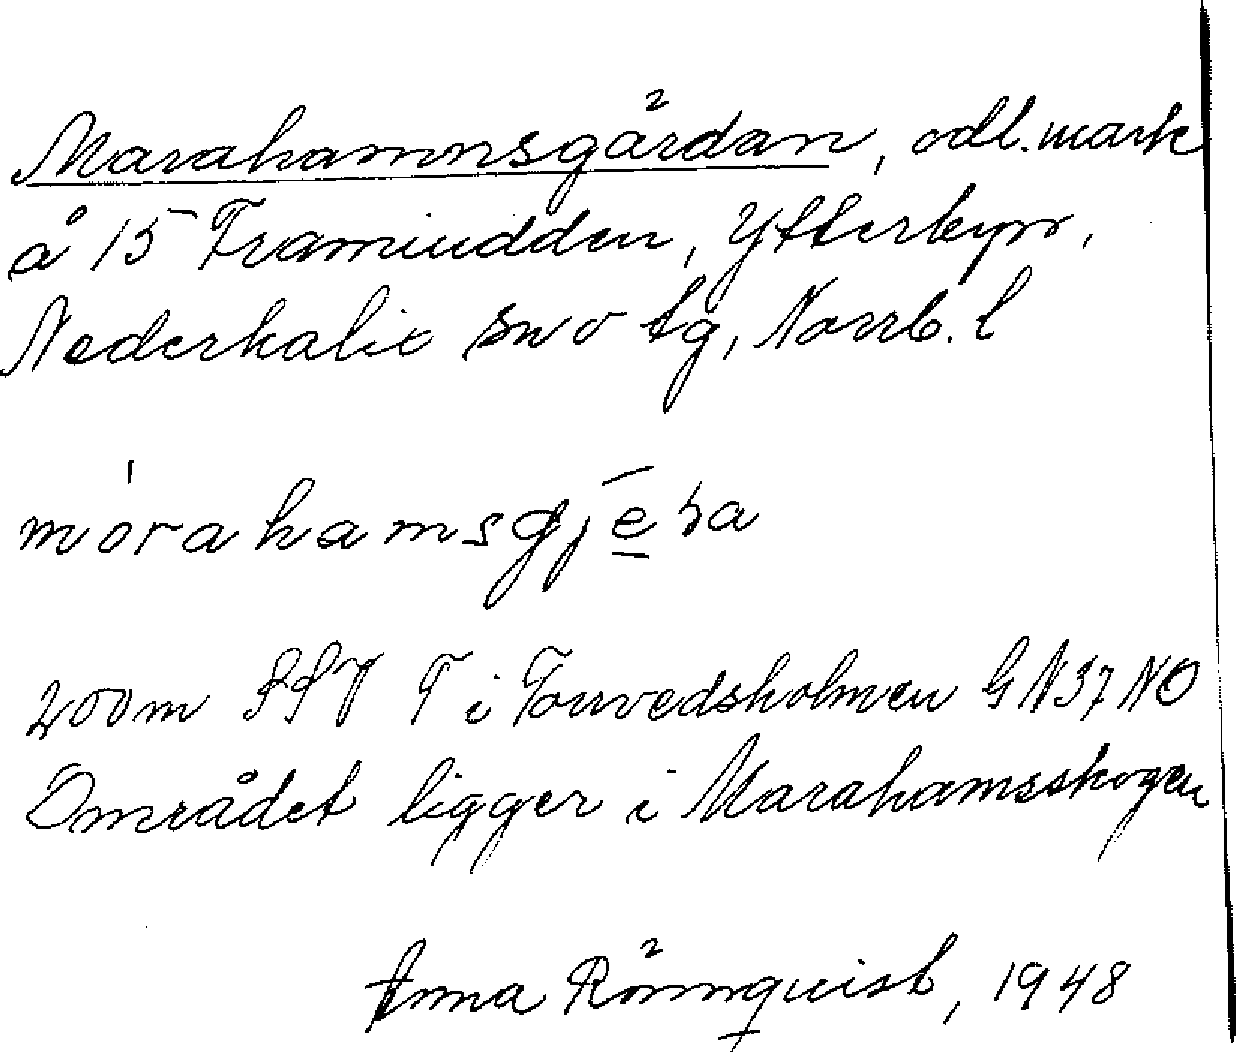 Marahamnsgärdan, odl. mark
å 15 Framiudden, Ytterbyn,
Nederkalix sn o tg, Norrb. l
mórahamsgjēra
200m SSV T i Torvedsholmen GN37NO
Området ligger i Marahamsskogen
Anna Rönnquist, 1948